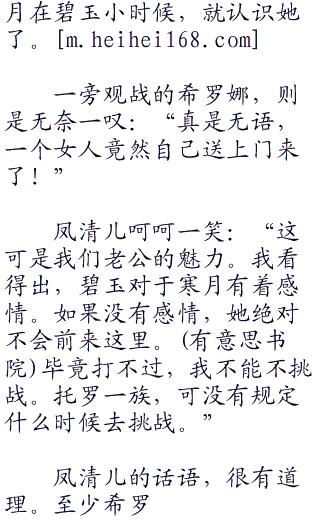 月在碧玉小时候，就认识她
了。[m.heihei168.com]
一旁观战的希罗娜，则
是无奈一叹：“真是无语，
一个女人竟然自己送上门来
了！”
凤清儿呵呵一笑：“这
可是我们老公的魅力。我看
得出，碧玉对于寒月有着感
情。如果没有感情，她绝对
不会前来这里。(有意思书
院)毕竟打不过，我不能不挑
战。托罗一族，可没有规定
什么时候去挑战。”
凤清儿的话语，很有道
理。至少希罗